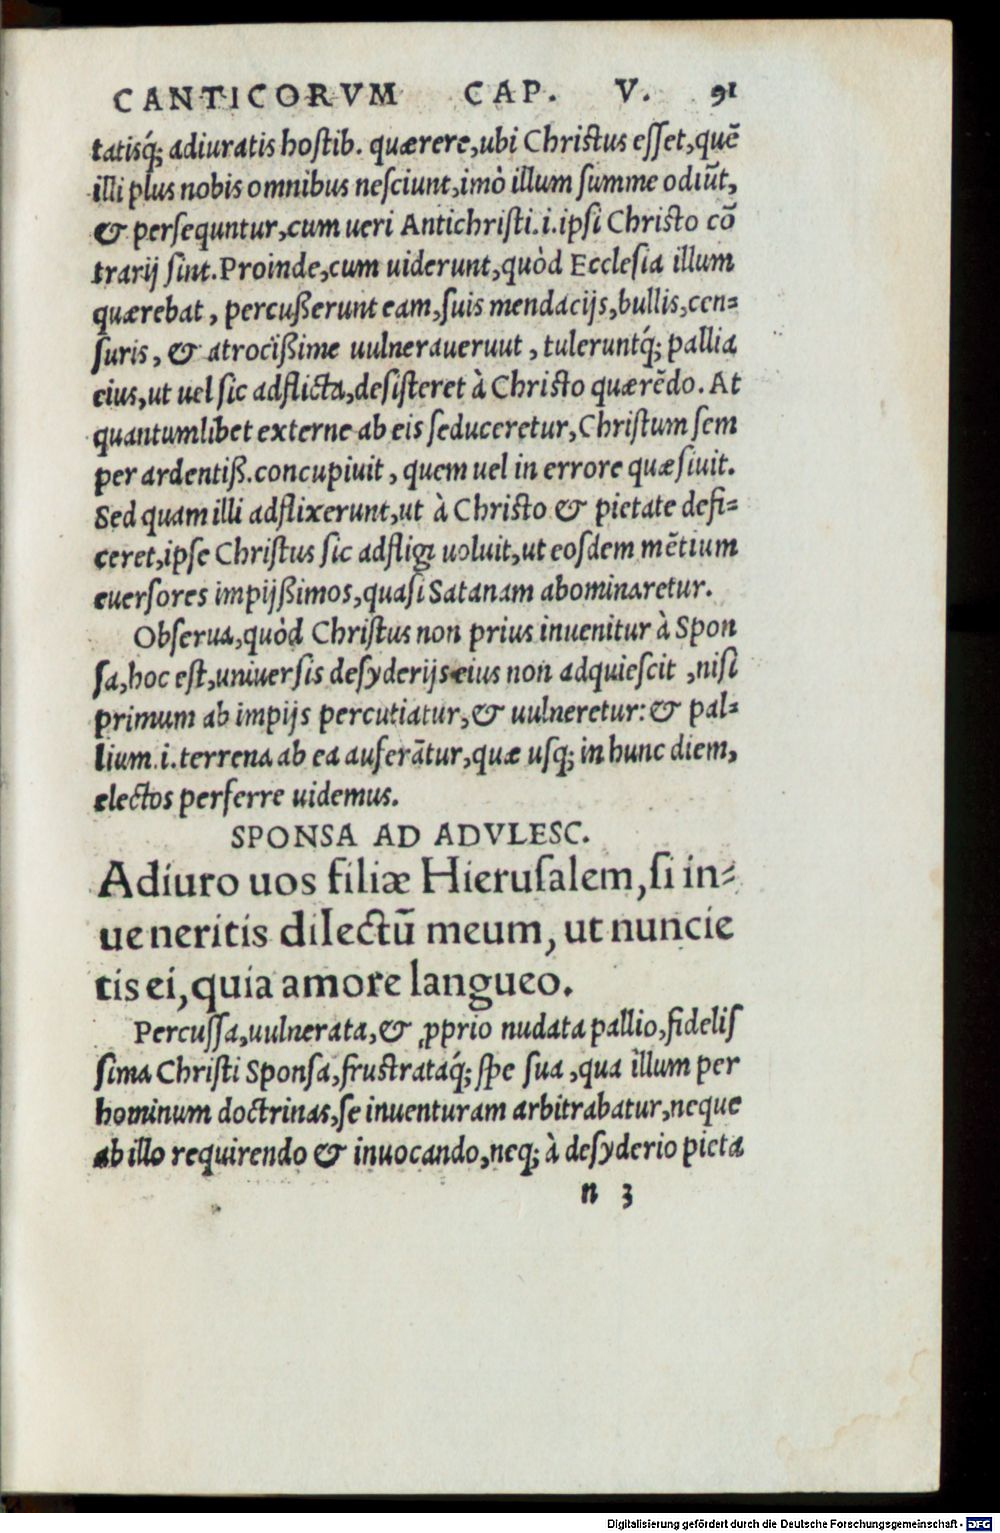 CANTICORVM CAP. V. 91
tatisq́; adiuratis hoſtib. quærere,ubi Chriſtus eſſet,quē
illi plus nobis omnibus neſciunt,imò illum ſumme odiūt,
& perſequntur,cum ueri Antichriſti.i.ipſi Chriſto cō
trarij ſint.Proinde,cum uiderunt,quòd Eccleſia illum
quærebat, percußerunt eam,ſuis mendacijs,bullis,cen=
ſuris, & atrocißime uulnerauerunt, tuleruntq́; pallia
eius,ut uel ſic adflicta,deſiſteret à Chriſto quærēdo. At
quantumlibet externe ab eis ſeduceretur,Chriſtum ſem
per ardentiß.concupiuit, quem uel in errore quæſiuit.
Sed quam illi adflixerunt,ut à Chriſto & pietate defi=
ceret,ipſe Chriſtus ſic adfligi uoluit,ut eoſdem mētium
euerſores impijßimos,quaſi Satanam abominaretur.
Obſerua,quòd Chriſtus non prius inuenitur à Spon
ſa,hoc eſt,uniuerſis deſyderijs eius non adquieſcit ,niſi
primum ab impijs percutiatur,& uulneretur: & pal=
lium.i.terrena ab ea auferātur,quæ uſq; in hunc diem,
electos perferre uidemus.
SPONSA AD ADVLESC.
Adiuro uos filiæ Hieruſalem,ſi in=
ueneritis dilectū meum, ut nuncie
tis ei, quia amore langueo.
Percuſſa,uulnerata,& ꝓprio nudata pallio,fideliſ
ſima Chriſti Sponſa,fruſtrataq́; ſpe ſua ,qua illum per
hominum doctrinas,ſe inuenturam arbitrabatur,neque
ab illo requirendo & inuocando,neq; à deſyderio pieta
n 3
Digitalisierung gefördert durch die Deutsche Forschungsgemeinschaft - DFG